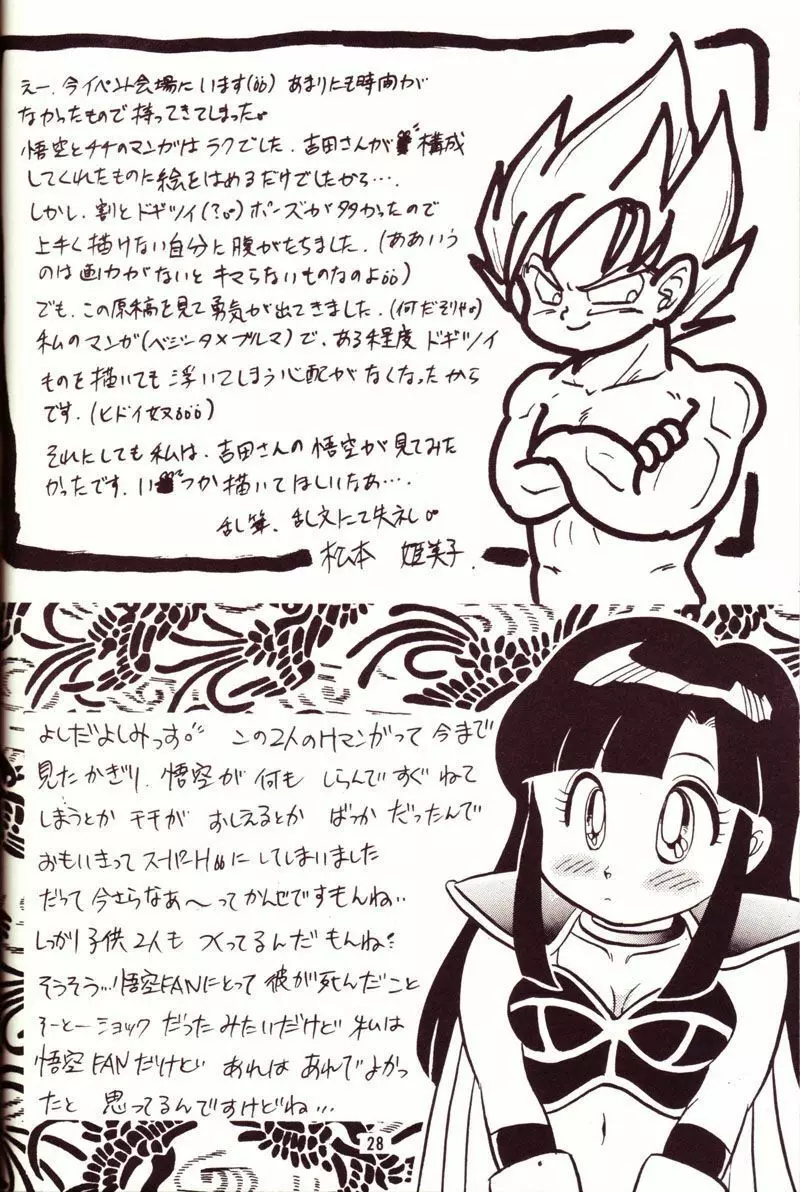 えー、今イベント会場にいます(66) あまりにも時間が
なかったもので持ってきてしまった。
悟空とチチのマンガはラクでした。吉田さんが構成
してくれたものに絵をはめるだけでしたから…。
しかし、割とドギツイ(?。)ポーズが多かったので
上手く描けない自分に腹がたちました。(ああいう
のは画力がないとキマらないものなのよ66)
でも、この原稿を見て勇気が出てきました。(何だそりゃ。)
私のマンガ(ベジータ×ブルマ)で、ある程度ドギツイ
ものを描いても浮いてしまう心配がなくなったから
です。(ヒドイ奴666)
それにしても私は、吉田さんの悟空が見てみた
かったです。いつか描いてほしいなあ…。
乱筆、乱文にて失礼。
松本 姫美子.
よしだよしみっす。 この2人のHマンガって今まで
見たかぎり、悟空が何も しらんですぐねて
しまうとか チチが おしえるとか ばっか だったんで
おもいきって スーパーH66にしてしまいました
だって今さらなあ〜ってかんじですもんね…
しっかり子供2人も つくってるんだもんね?
そうそう…悟空FANにとって 彼が死んだこと
そーとーショック だったみたいだけど 私は
悟空FANだけど あれは あれでよかっ
たと 思ってるんですけどね…
28